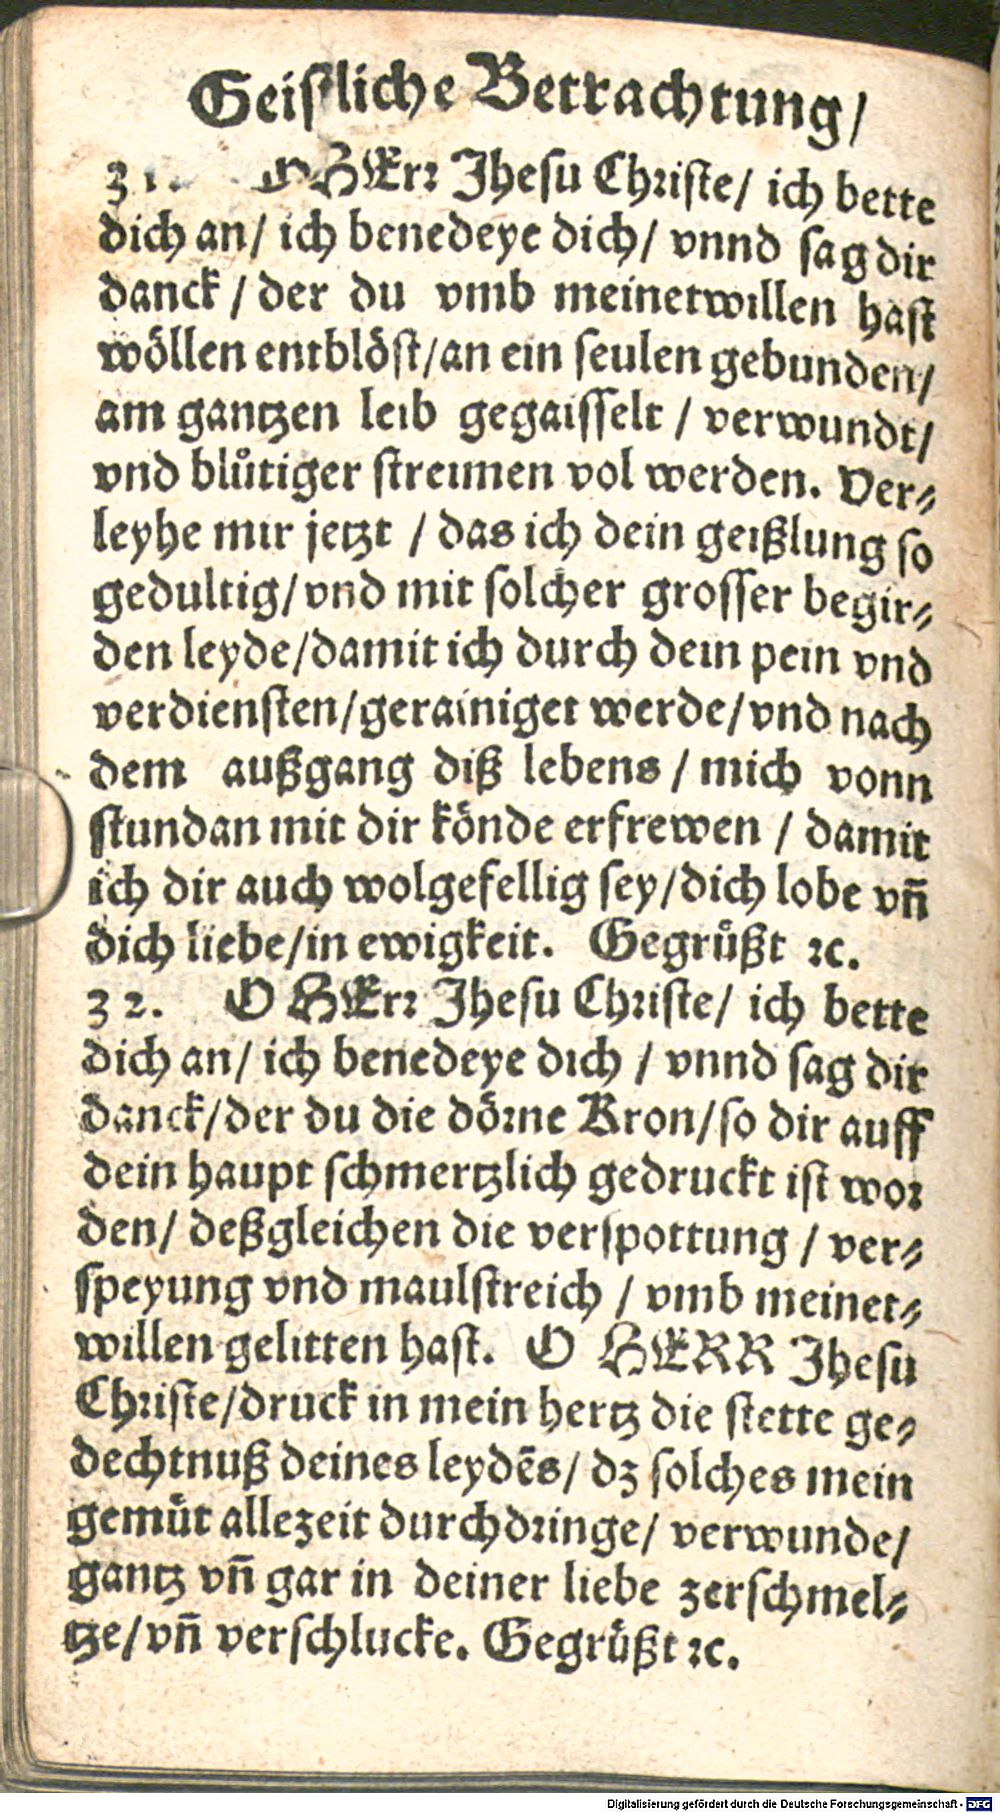 Geistliche Betrachtung/
31. O HErr Jhesu Christe/ ich bette
dich an/ ich benedeye dich/ vnnd sag dir
danck / der du vmb meinetwillen hast
wöllen entblöst/an ein seulen gebunden/
am gantzen leib gegaisselt / verwundt/
vnd blůtiger streimen vol werden. Ver⸗
leyhe mir jetzt / das ich dein geißlung so
gedultig/vnd mit solcher grosser begir⸗
den leyde/damit ich durch dein pein vnd
verdiensten/gerainiget werde/vnd nach
dem außgang diß lebens / mich vonn
stundan mit dir könde erfrewen / damit
ich dir auch wolgefellig sey/dich lobe vñ
dich liebe/in ewigkeit. Gegrüßt ꝛc.
32. O HErr Jhesu Christe/ ich bette
dich an/ ich benedeye dich / vnnd sag dir
danck/der du die dörne Kron/so dir auff
dein haupt schmertzlich gedruckt ist wor
den/ deßgleichen die verspottung / ver⸗
speyung vnd maulstreich / vmb meinet⸗
willen gelitten hast. O HERR Jhesu
Christe/druck in mein hertz die stette ge⸗
dechtnuß deines leydẽs/ dz solches mein
gemüt allezeit durchdringe/ verwunde/
gantz vñ gar in deiner liebe zerschmel⸗
tze/vñ verschlucke. Gegrüßt ꝛc.
Digitalisierung gefördert durch die Deutsche Forschungsgemeinschaft - DFG